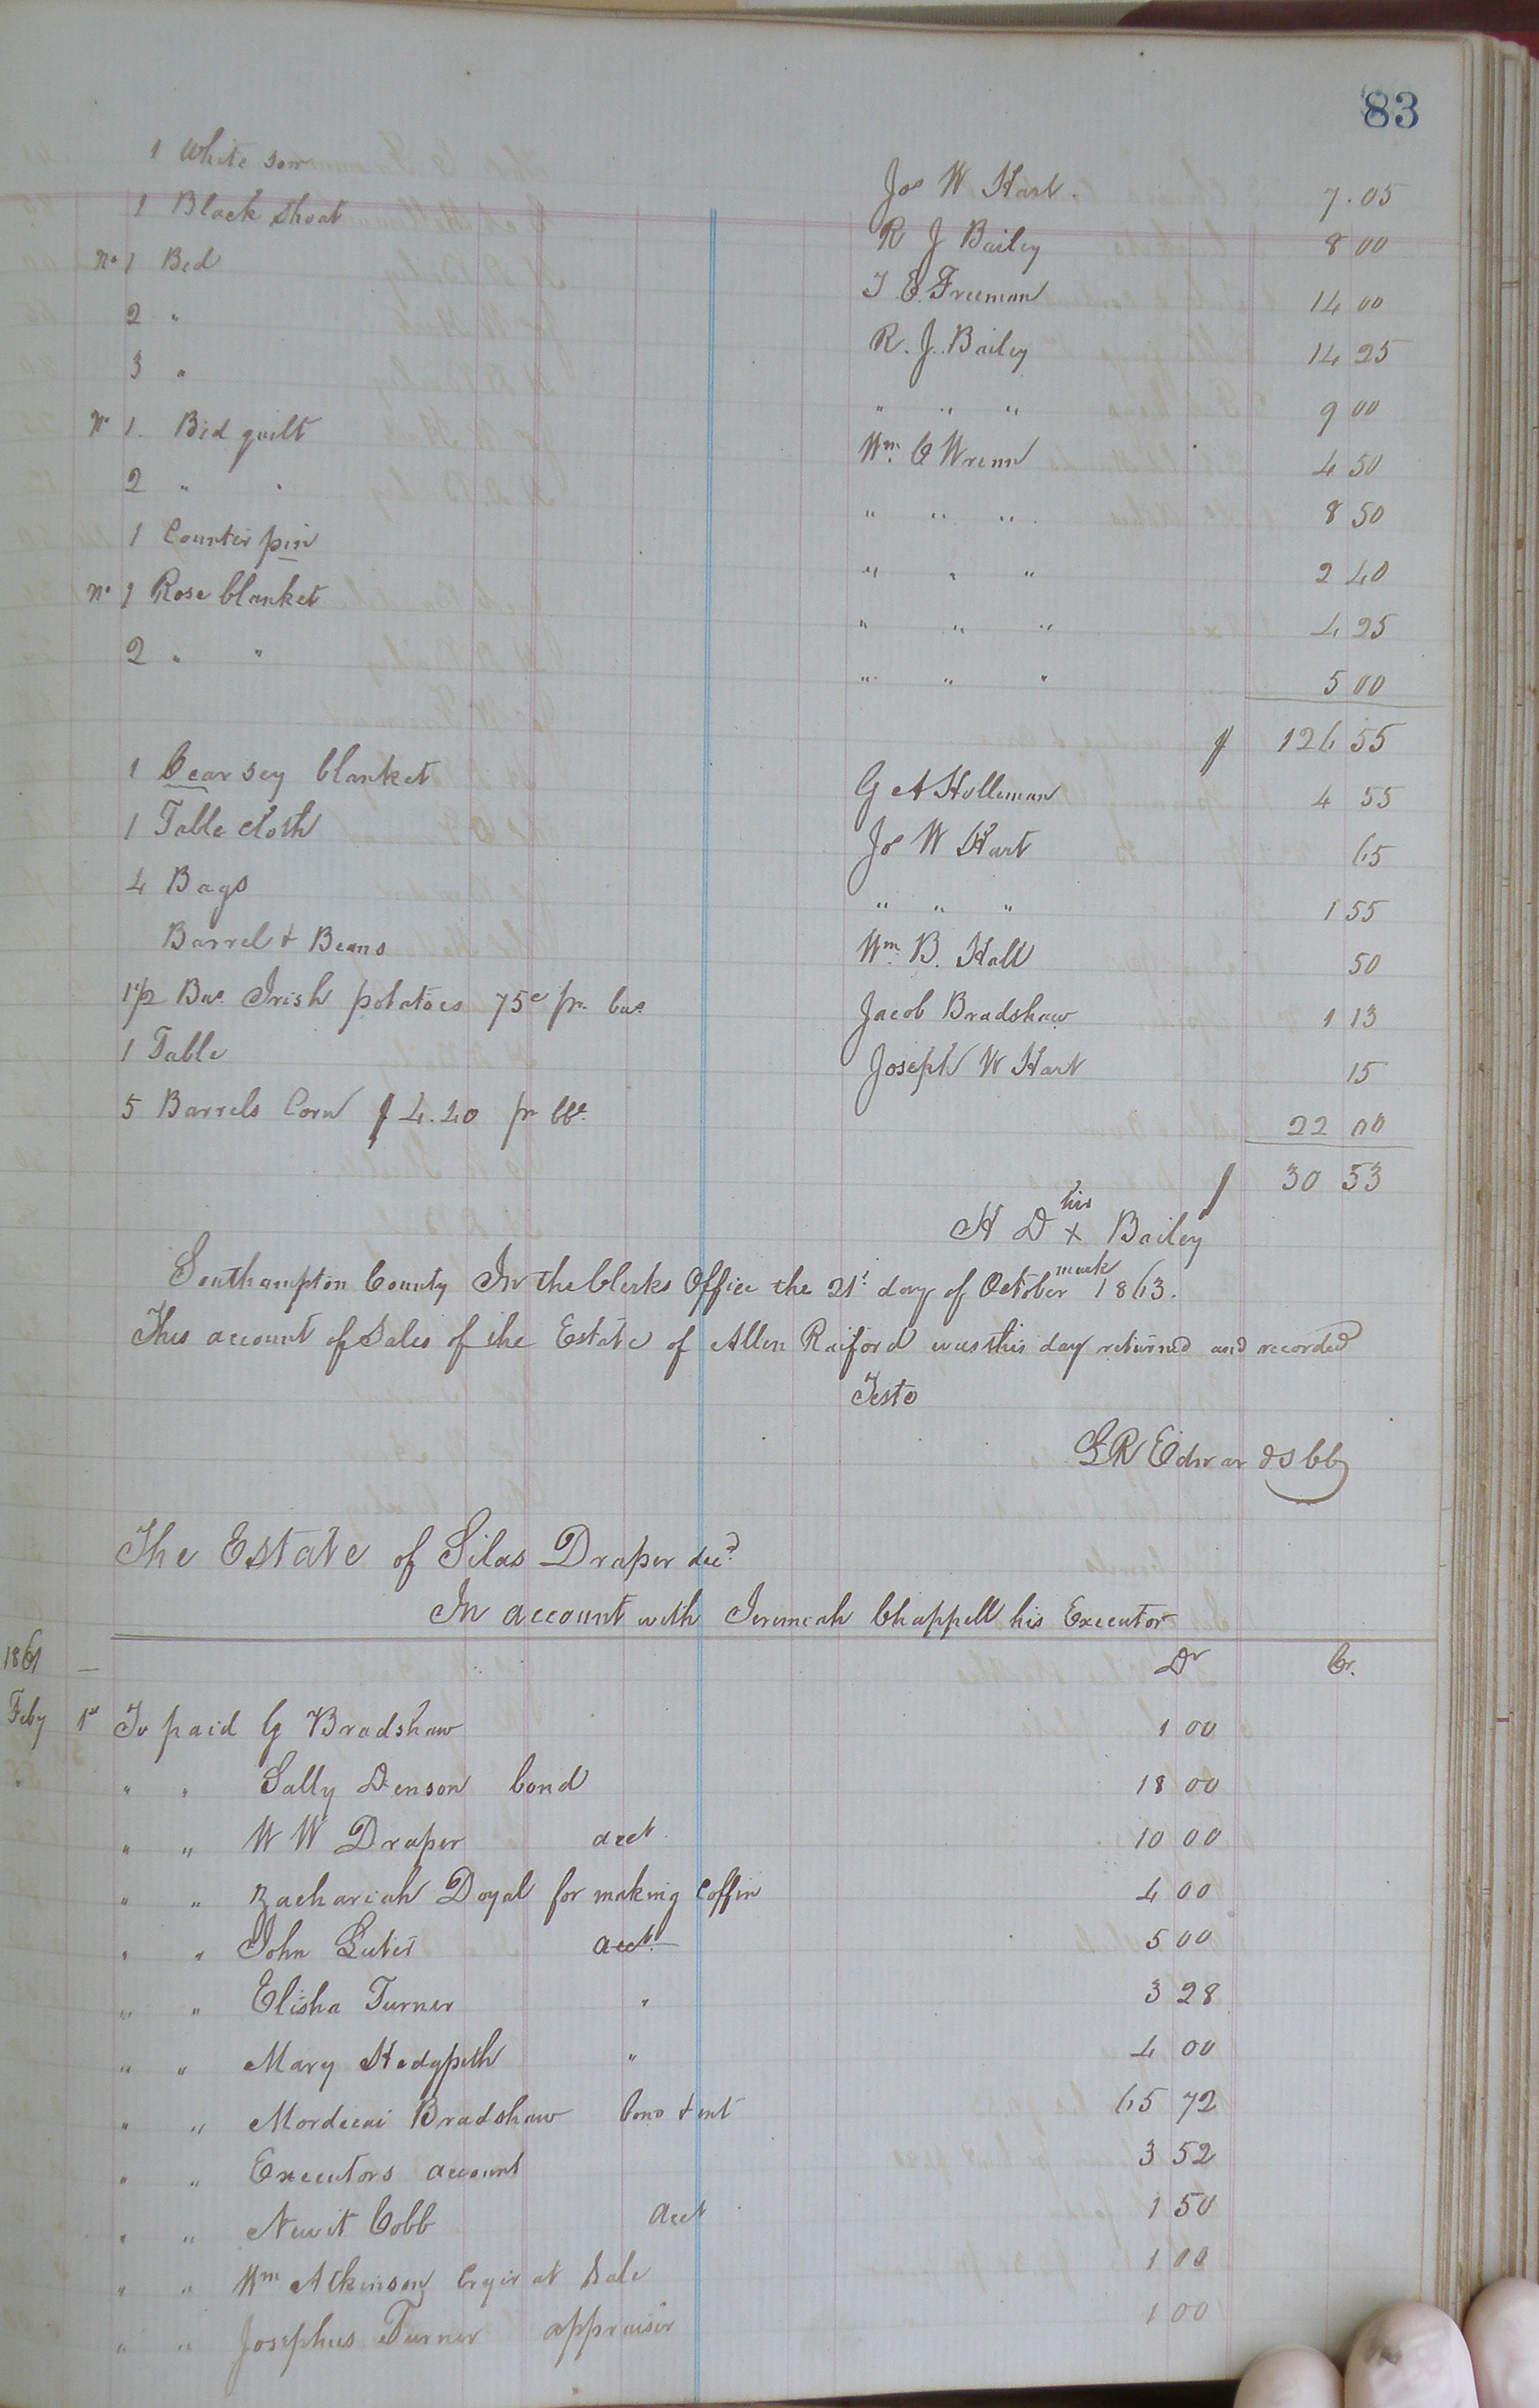 83
1 White sow Jos W Hart. 7.05
1 Black shoat R J Bailey 8 00
No 1 Bed J. E. Freeman 14 00
2 " R. J. Bailey 14 25
3 " " " " 9 00
No 1. Bed quilt Wm. O Wrenn 4 50
2 " " " " " 8 50
1 Counter pin " " " 2 40
No 1 Rose blanket " " " 4 25
2 " " " " " 5 00
$ 126 55
1 Cearsey blanket G A Holleman 4 55
1 Table cloth Jos W Hart 65
4 Bags " " " 1 55
Barrel & Beans Wm. B. Hall 50
1 1/2 Bus. Irish potatoes 75c pr. bus Jacob Bradshaw 1 13
1 Table Joseph W Hart 15
5 Barrels Corn $ 4.40 pr bbl. 22 00
$ 30 53
his
H D x Bailey
mark
Southampton County In the Clerks Office the 21st day of October 1863.
This account of Sales of the Estate of Allen Raiford was this day returned and recorded
Teste
L R Edwards CC
The Estate of Silas Draper decd.
In account with Jeremiah Chappell his Executor
1861 — Dr Cr.
Feby 1st To paid G Bradshaw 1 00
" " Sally Denson bond 18 00
" " W W Draper acct 10 00
" " Zachariah Doyal for making Coffin 4 00
" " John Luter acct. 5 00
" " Elisha Turner " 3 28
" " Mary Hedgpeth " 4 00
" " Mordecai Bradshaw bond & int 65 72
" " Executors account 3 52
" " Newit Cobb acct 1 50
" " Wm Atkinson Cryir at Sale 1 00
" " Josephus Turner appraisir 1 00